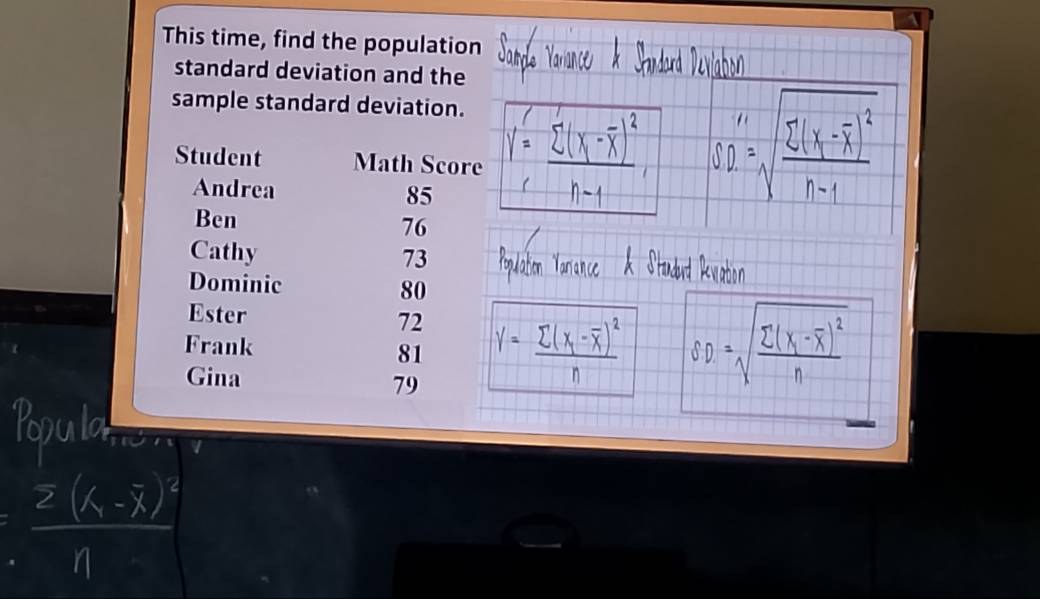 This time, find the population
standard deviation and the
sample standard deviation.
Student Math Score
Andrea 85
Ben 76
Cathy 73
Dominic 80
Ester 72
Frank 81
Gina 79
Sample Variance & Standard Deviation
V = Σ(x₁ - x̄)² / n-1
S.D. = √Σ(x₁ - x̄)² / n-1
Population Variance & Standard Deviation
V = Σ(x₁ - x̄)² / n
S.D. = √Σ(x₁ - x̄)² / n
= Σ(x₁ - x̄)² / n